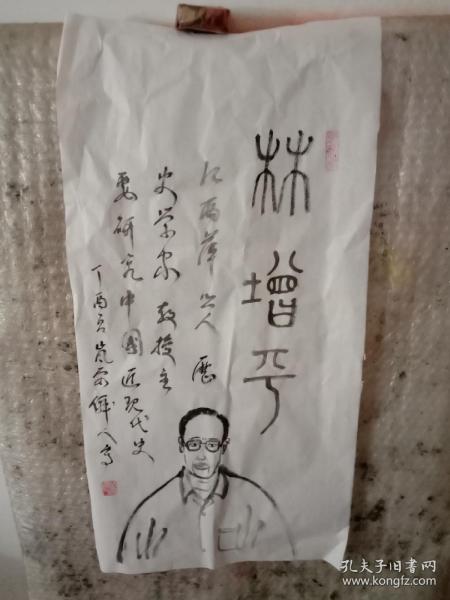 林增平
江西萍乡人 历
史学家 教授主
要研究中国近现代史
丁酉 岚
孔夫子旧书网
www.kongfz.com